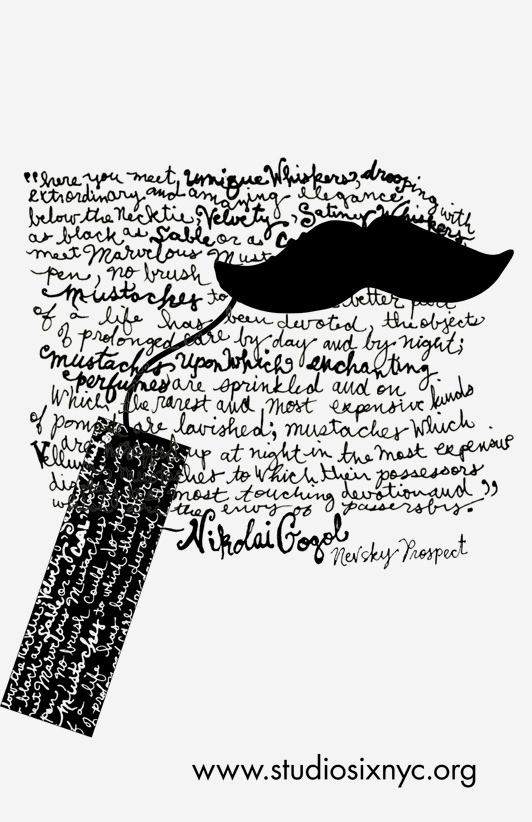 "here you meet unique Whiskers, drooping
extrordinary and amazing elegance with
below the necktie, Velvety, Satiny Whiskers
as black as Sable or as
meet Marvelous Must
pen, no brush
mustaches to better part
of a life has been devoted, the objects
of prolonged care by day and by night;
mustaches upon which enchanting
perfumes are sprinkled and on
which the rarest and most expensive kinds
of pomades are lavished; mustaches which
are up at night in the most expensive
Vellum
to which their possessors
most touching devotion and
the envy of passersby."
-Nikolai Gogol
Nevsky Prospect
low the necktie, Velvety
black as Sable or as
meet Marvelous Mustaches
pen, no brush could do
Mustaches to which
of a life has been devoted
of prolonged care by day
www.studiosixnyc.org